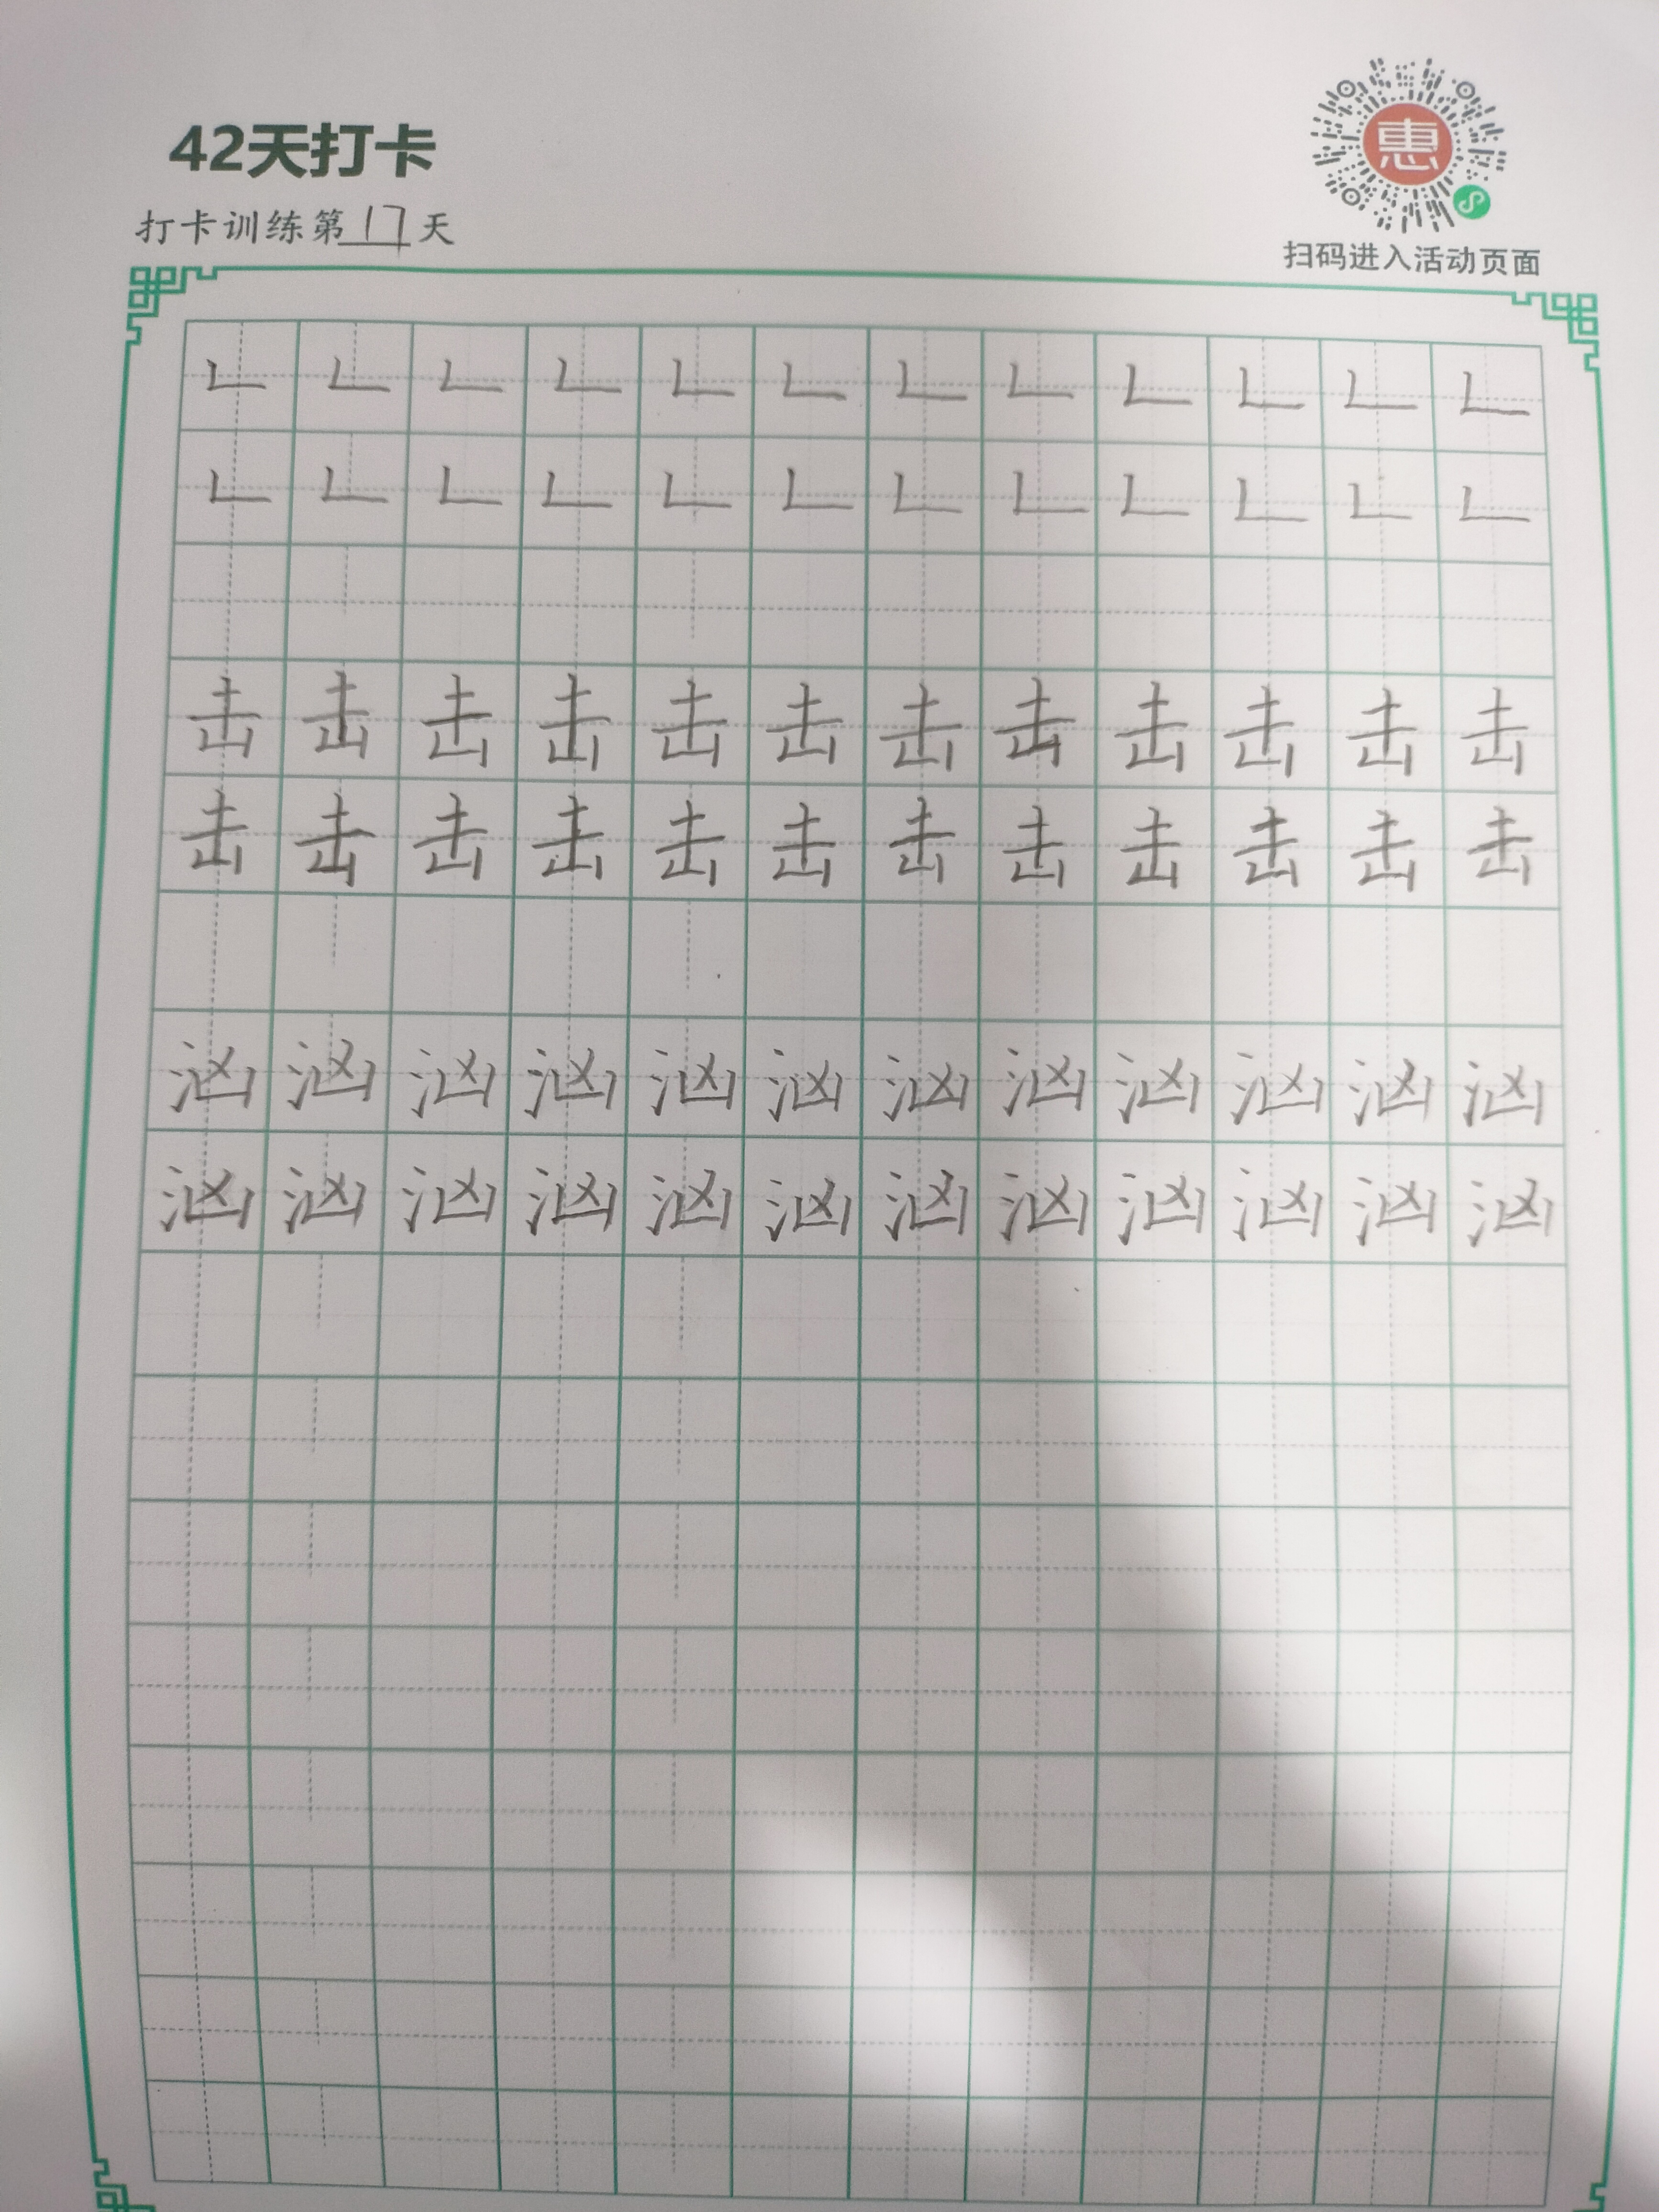 42天打卡
惠
打卡训练第17天
扫码进入活动页面
𠃊𠃊𠃊𠃊𠃊𠃊𠃊𠃊𠃊𠃊𠃊𠃊
𠃊𠃊𠃊𠃊𠃊𠃊𠃊𠃊𠃊𠃊𠃊𠃊
击击击击击击击击击击击击
击击击击击击击击击击击击
汹汹汹汹汹汹汹汹汹汹汹汹
汹汹汹汹汹汹汹汹汹汹汹汹